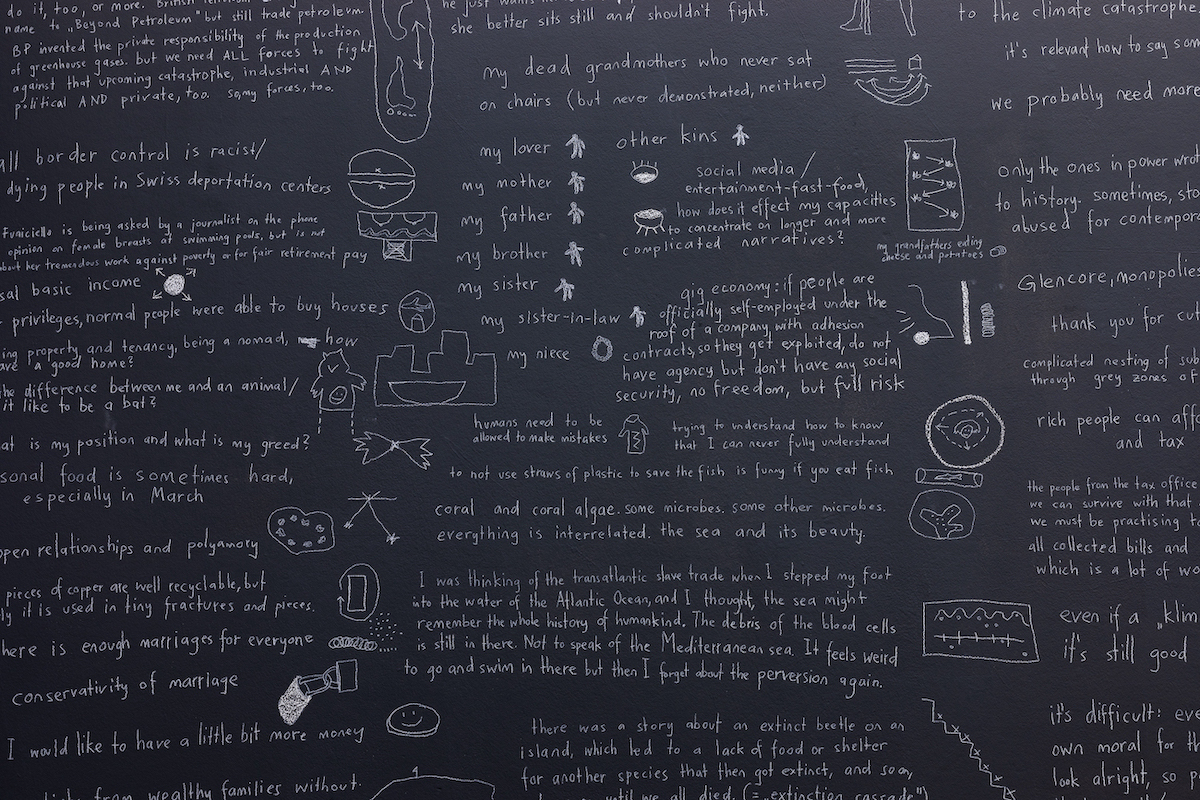 do it, too, or more. British
name to „Beyond Petroleum" but still trade petroleum.
BP invented the private responsibility of the production
of greenhouse gases. but we need ALL forces to fight
against that upcoming catastrophe, industrial AND
political AND private, too. so, my forces, too.
all border control is racist/
dying people in Swiss deportation centers
Funiciello is being asked by a journalist on the phone
opinion on female breasts at swimming pools, but is not
about her tremendous work against poverty or for fair retirement pay
sal basic income
privileges, normal people were able to buy houses
ing property and tenancy, being a nomad, how
ave a good home?
the difference between me and an animal/
it like to be a bat?
at is my position and what is my greed?
sonal food is sometimes hard,
especially in March
open relationships and polyamory
pieces of copper are well recyclable, but
ly it is used in tiny fractures and pieces.
here is enough marriages for everyone
conservativity of marriage
I would like to have a little bit more money
from wealthy families without.
he just wants
she better sits still and shouldn't fight.
my dead grandmothers who never sat
on chairs (but never demonstrated, neither)
my lover
my mother
my father
my brother
my sister
my sister-in-law
my niece
other kins
social media/
entertainment-fast-food,
how does it effect my capacities
to concentrate on longer and more
complicated narratives?
my grandfathers eating
cheese and potatoes
gig economy: if people are
officially self-employed under the
roof of a company, with adhesion
contracts, so they get exploited, do not
have agency but don't have any social
security, no freedom, but full risk
humans need to be
allowed to make mistakes
trying to understand how to know
that I can never fully understand
to not use straws of plastic to save the fish is funny if you eat fish
coral and coral algae. some microbes. some other microbes.
everything is interrelated. the sea and its beauty.
I was thinking of the transatlantic slave trade when I stepped my foot
into the water of the Atlantic Ocean, and I thought, the sea might
remember the whole history of humankind. The debris of the blood cells
is still in there. Not to speak of the Mediterranean sea. It feels weird
to go and swim in there but then I forget about the perversion again.
there was a story about an extinct beetle on an
island, which led to a lack of food or shelter
for another species that then got extinct, and so on,
until we all died. (= „extinction cascade")
to the climate catastrophe
it's relevant how to say som
we probably need more
Only the ones in power wrot
to history. sometimes, sto
abused for contempor
Glencore, monopolies
thank you for cut
complicated nesting of sub
through grey zones of
rich people can affo
and tax
the people from the tax office
we can survive with that
we must be practising t
all collected bills and
which is a lot of wo
even if a „klim
it's still good
it's difficult: eve
own moral for th
look alright, so p